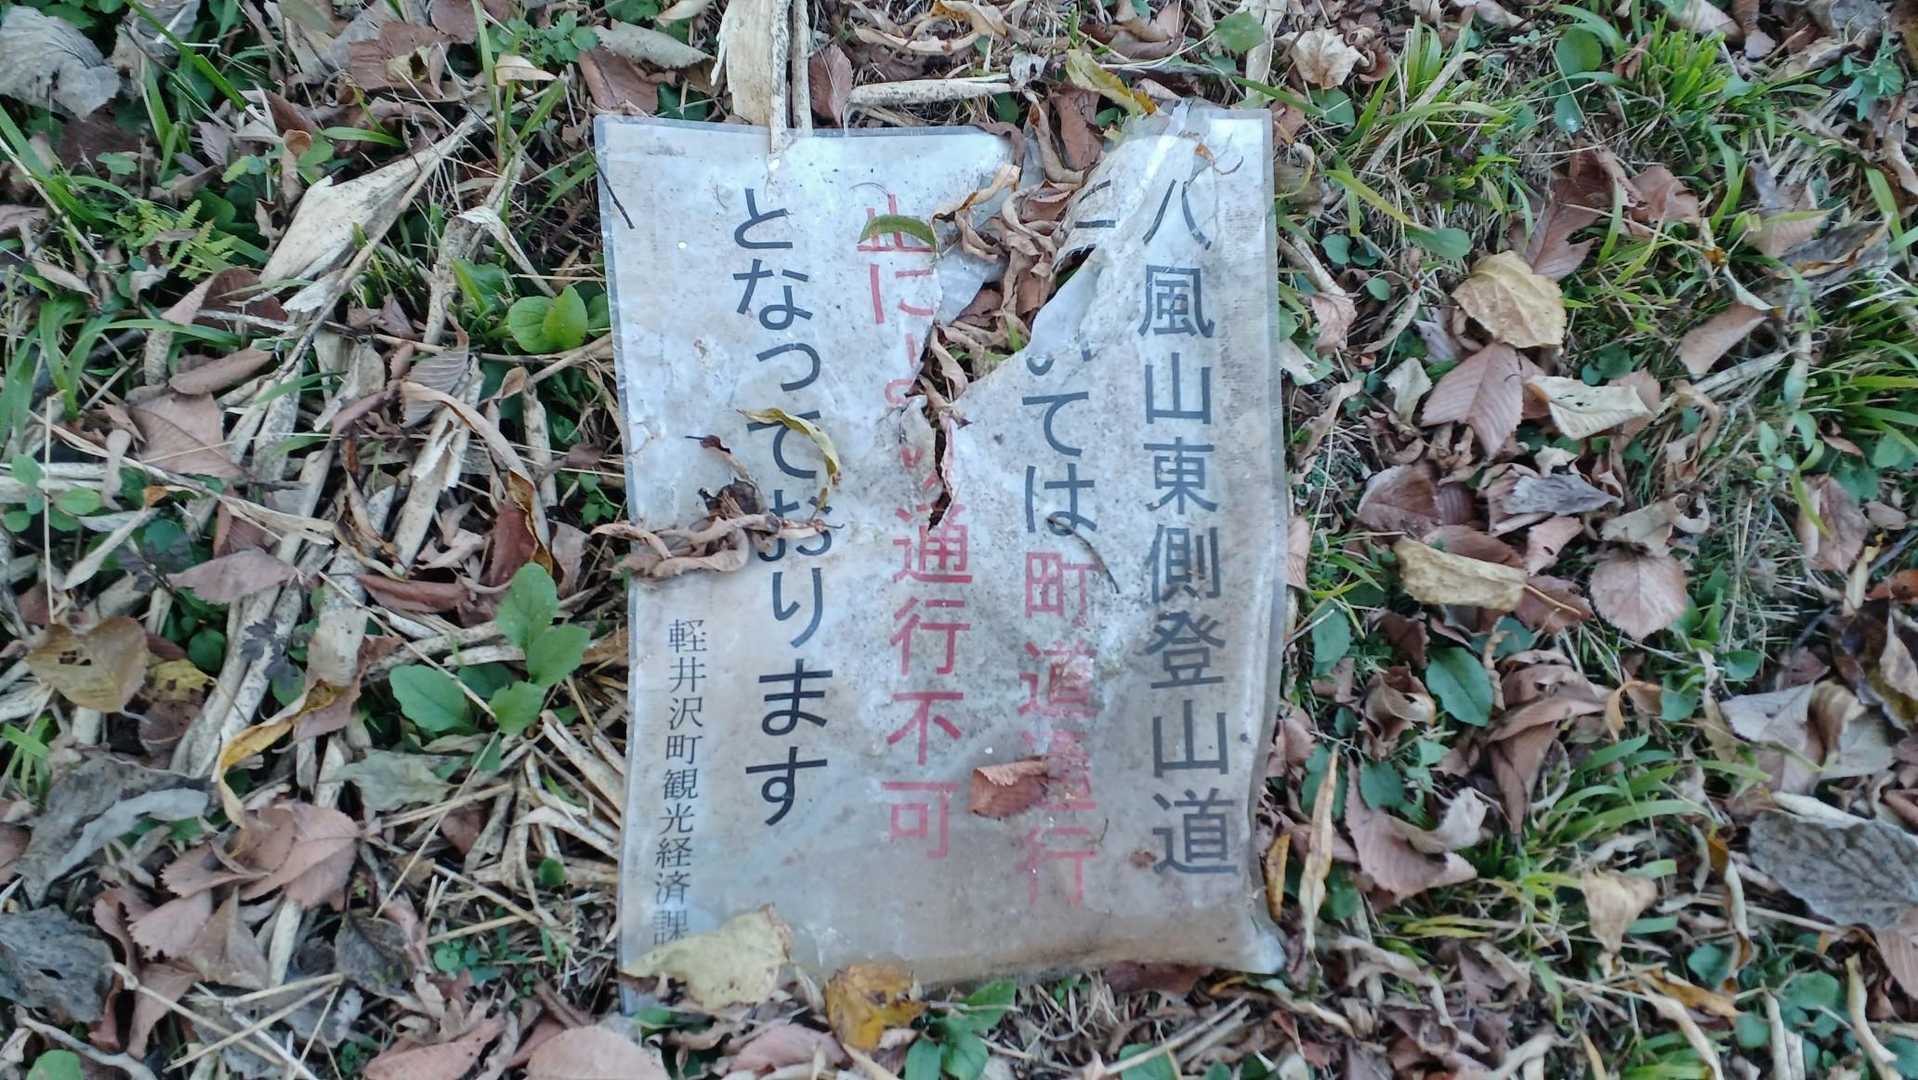 八風山東側登山道
に いては町道通行
止により通行不可
となっております
軽井沢町観光経済課